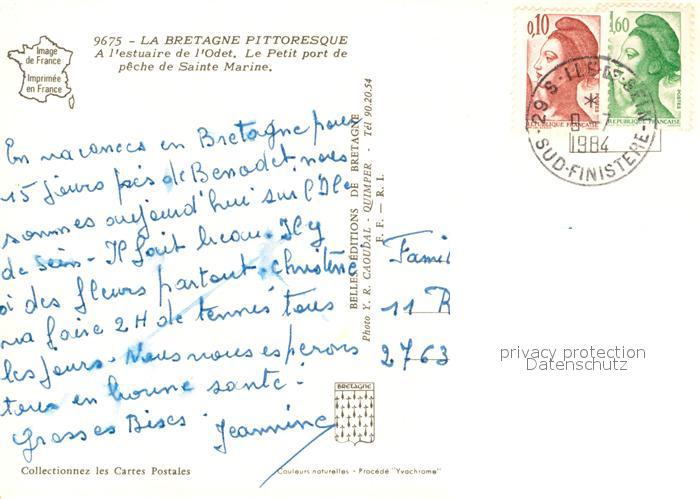 Image
de France
Imprimée
en France
9675 - LA BRETAGNE PITTORESQUE
A l'estuaire de l'Odet. Le Petit port de
pêche de Sainte Marine.
0,10
1,60
RÉPUBLIQUE FRANÇAISE
RÉPUBLIQUE FRANÇAISE
29 S - ILE DE SEIN
*
8 - 7
1984
SUD-FINISTERE
En vacances en Bretagne pour
15 jours près de Benodet, nous
sommes aujourd'hui sur l'Ile
de Sein - Il fait beau. Il y
a des fleurs partout. Christine
va faire 2H de tennis tous
les jours - Nous nous esperons
tous en bonne santé.
Grosses Bises Jeannine
BELLES ÉDITIONS DE BRETAGNE
Photo Y. R. CAOUDAL - QUIMPER - Tél 90.20.54
F. F. - R. I.
Famil
11 R
2763
privacy protection
Datenschutz
BRETAGNE
Collectionnez les Cartes Postales
Couleurs naturelles - Procédé "Yvachrome"